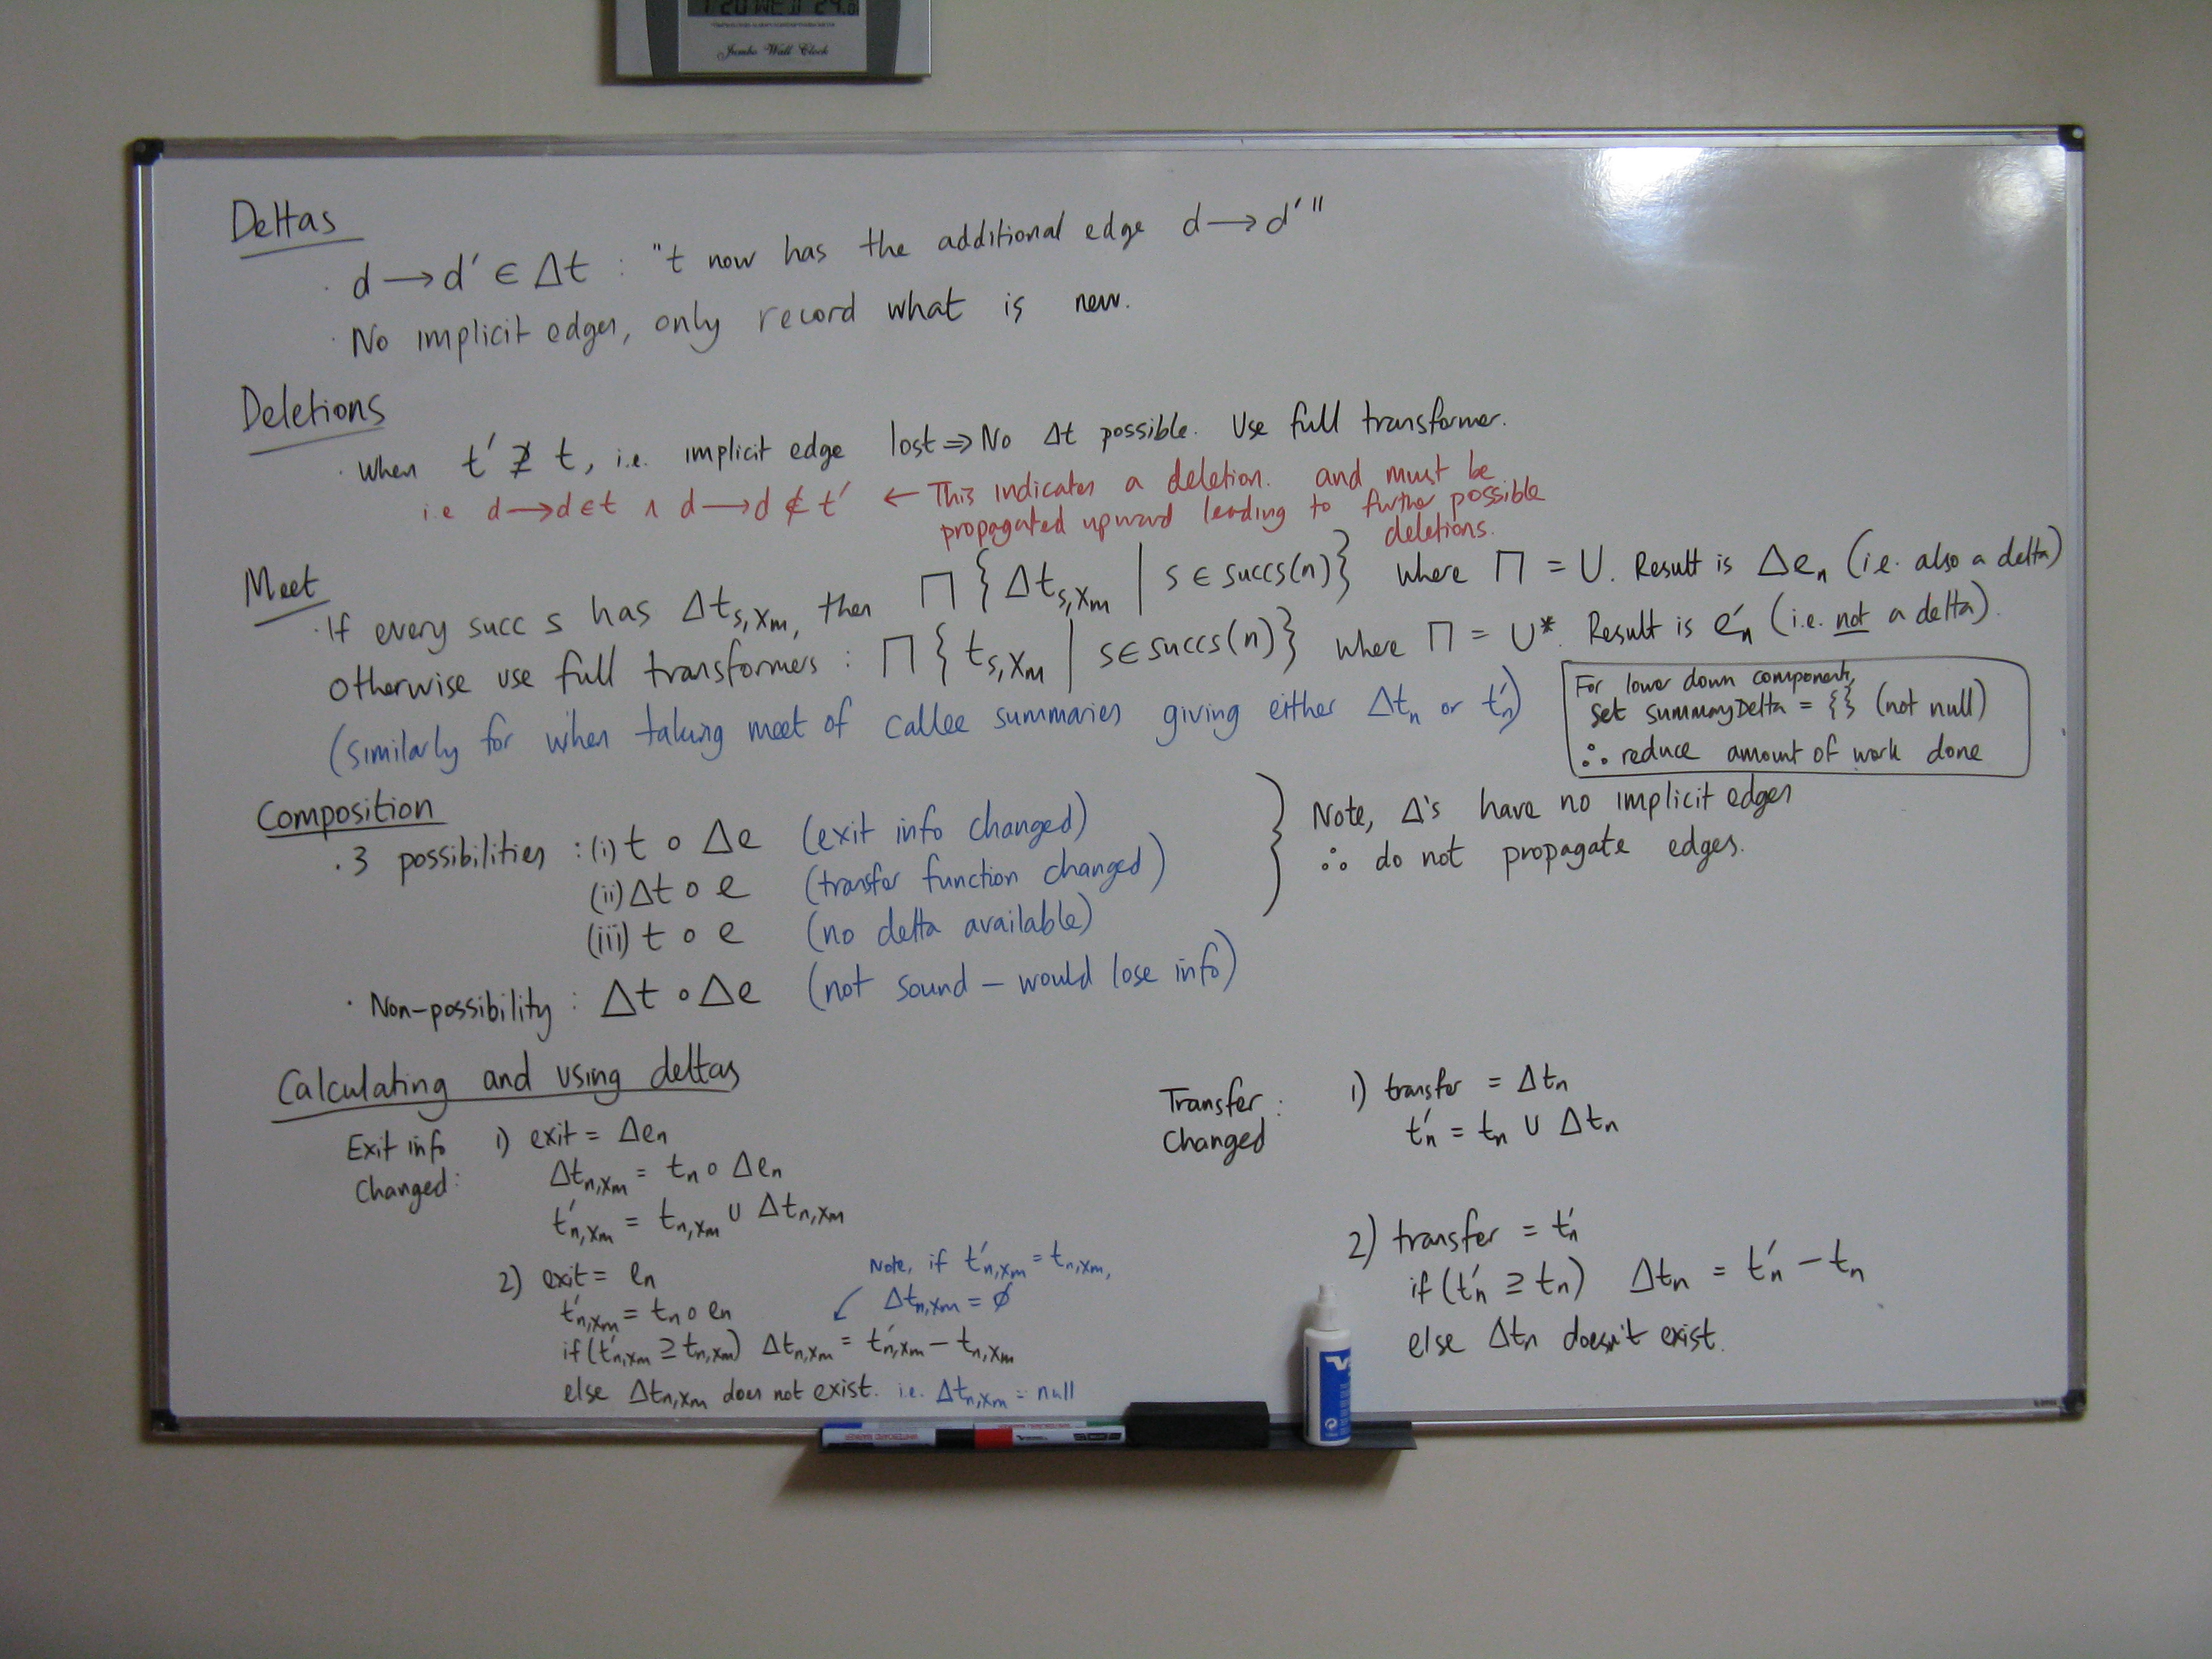 Jumbo Wall Clock
Deltas
· d → d' ∈ Δt : "t now has the additional edge d → d'"
· No implicit edges, only record what is new.
Deletions
· When t' ⋣ t, i.e. implicit edge lost ⇒ No Δt possible. Use full transformer.
i.e d → d ∈ t ∧ d → d ∉ t' ← This indicates a deletion. and must be
propagated upward leading to further possible
deletions.
Meet
· If every succ s has Δt_{s,Xm}, then ⊓ { Δt_{s,Xm} | s ∈ succs(n) } where ⊓ = ∪. Result is Δe_n (i.e. also a delta)
otherwise use full transformers : ⊓ { t_{s,Xm} | s ∈ succs(n) } where ⊓ = ∪*. Result is e'_n (i.e. not a delta).
(similarly for when taking meet of callee summaries giving either Δt_n or t'_n)
For lower down components,
set summaryDelta = {} (not null)
∴ reduce amount of work done
Composition
· 3 possibilities : (i) t ∘ Δe (exit info changed)
(ii) Δt ∘ e (transfer function changed)
(iii) t ∘ e (no delta available)
Note, Δ's have no implicit edges
∴ do not propagate edges.
· Non-possibility : Δt ∘ Δe (not sound – would lose info)
Calculating and using deltas
Exit info
Changed :
1) exit = Δe_n
Δt_{n,Xm} = t_n ∘ Δe_n
t'_{n,Xm} = t_{n,Xm} ∪ Δt_{n,Xm}
2) exit = e_n
t'_{n,Xm} = t_n ∘ e_n
if (t'_{n,Xm} ⊇ t_{n,Xm}) Δt_{n,Xm} = t'_{n,Xm} – t_{n,Xm}
else Δt_{n,Xm} does not exist. i.e. Δt_{n,Xm} = null
Note, if t'_{n,Xm} = t_{n,Xm},
Δt_{n,Xm} = ∅
Transfer :
Changed
1) transfer = Δt_n
t'_n = t_n ∪ Δt_n
2) transfer = t'_n
if (t'_n ⊇ t_n) Δt_n = t'_n – t_n
else Δt_n doesn't exist.